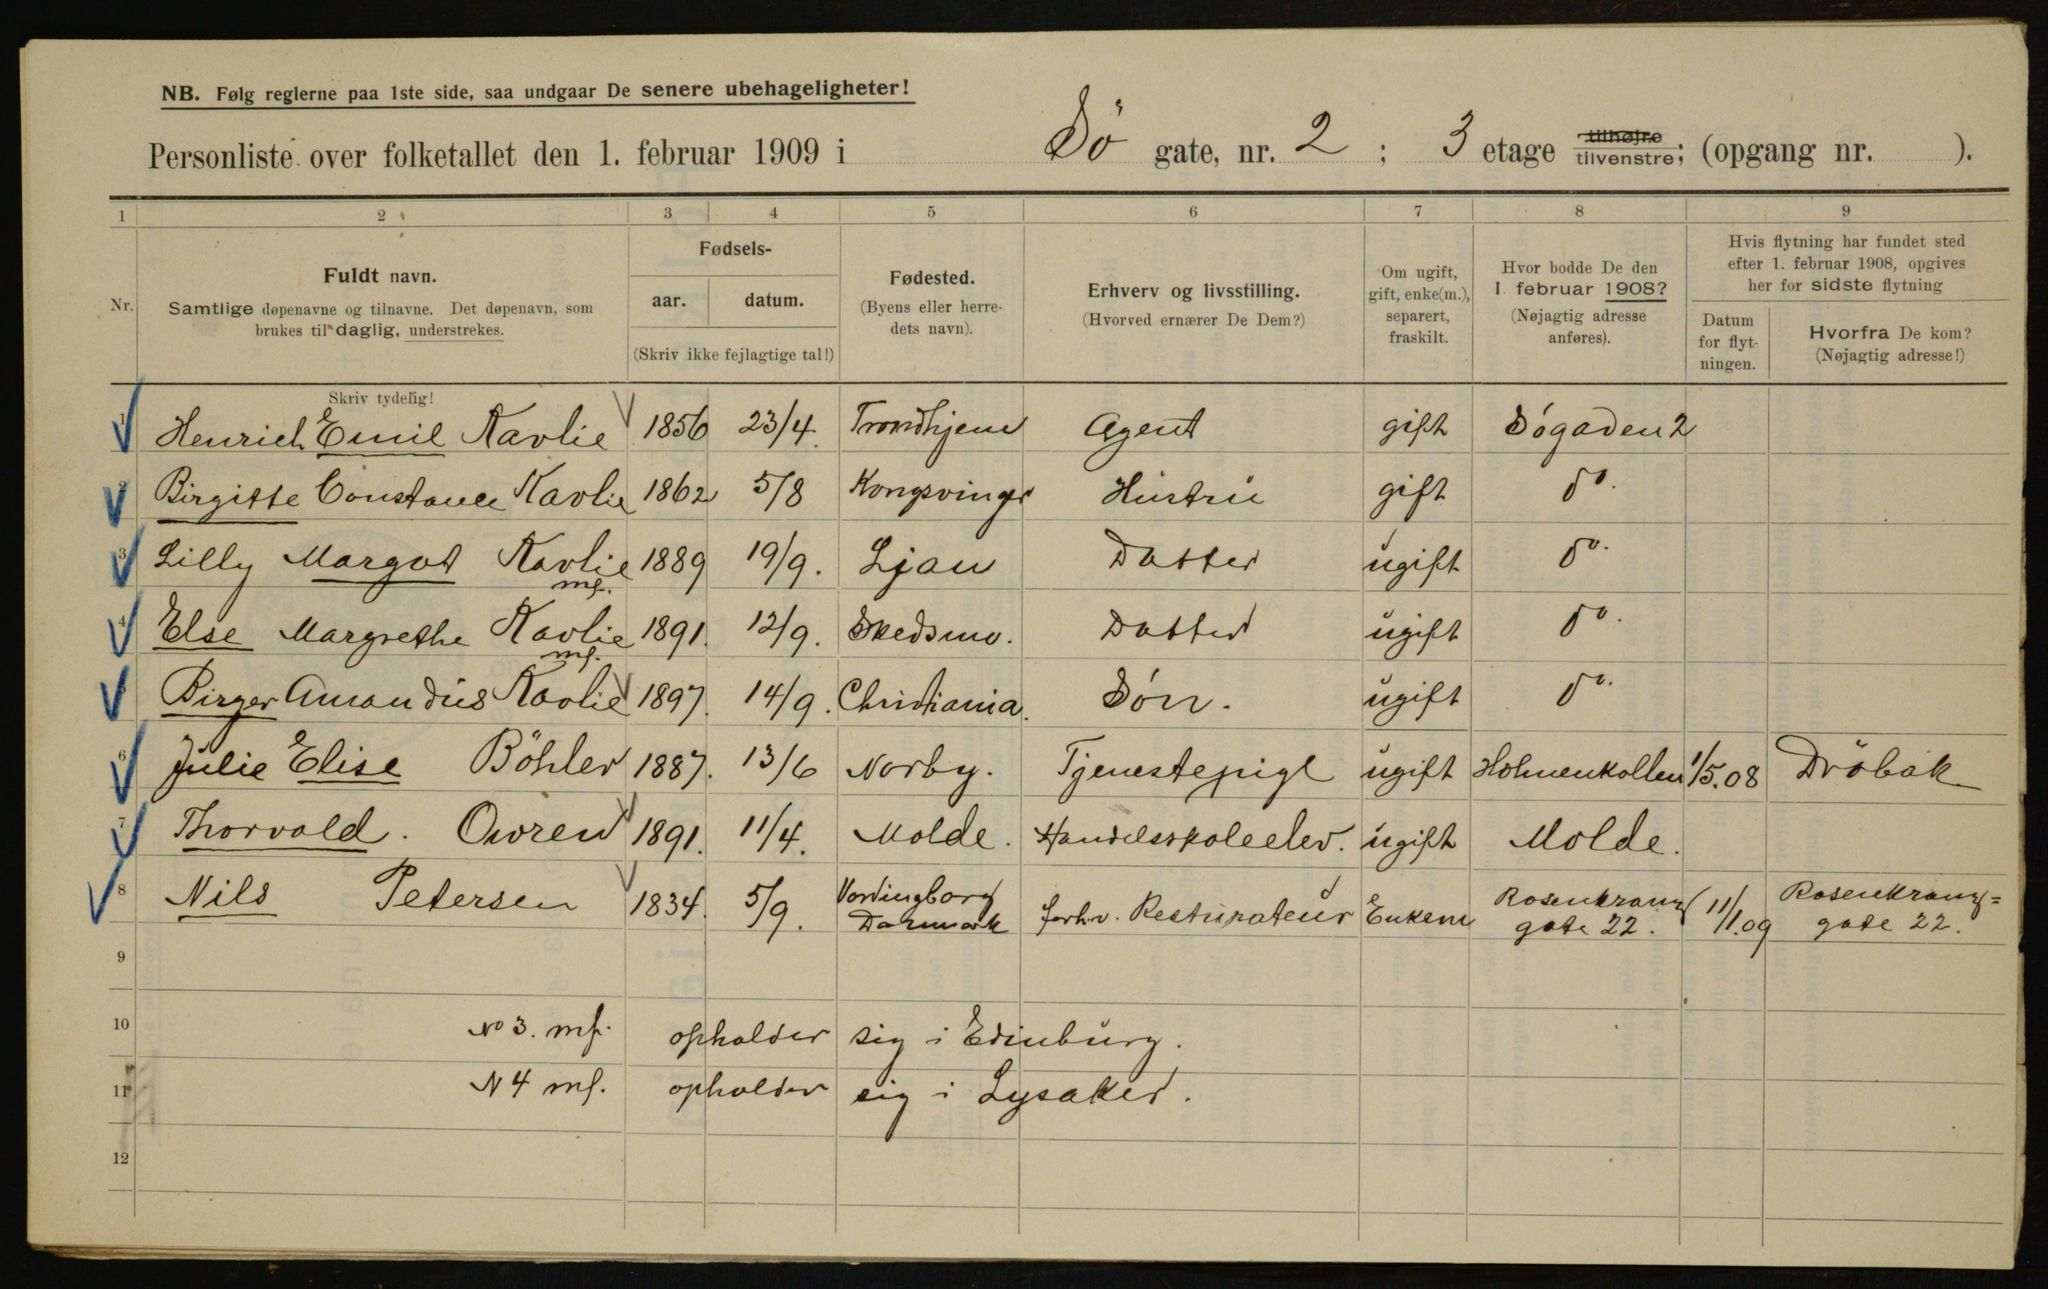 NB. Følg reglerne paa 1ste side, saa undgaar De senere ubehageligheter!
Personliste over folketallet den 1. februar 1909 i Sö gate, nr. 2 ; 3 etage tilhøjre tilvenstre; (opgang nr. ).
1 2 3 4 5 6 7 8 9
Nr.
Fuldt navn.
Samtlige døpenavne og tilnavne. Det døpenavn, som
brukes til daglig, understrekes.
Skriv tydelig!
Fødsels-
aar. datum.
(Skriv ikke fejlagtige tal!)
Fødested.
(Byens eller herre-
dets navn).
Erhverv og livsstilling.
(Hvorved ernærer De Dem?)
Om ugift,
gift, enke(m.),
separert,
fraskilt.
Hvor bodde De den
1 februar 1908?
(Nøjagtig adresse
anføres).
Hvis flytning har fundet sted
efter 1. februar 1908, opgives
her for sidste flytning
Datum
for flyt-
ningen.
Hvorfra De kom?
(Nøjagtig adresse!)
1 Henrich Emil Kavlie 1856 23/4. Trondhjem Agent gift Sógaden 2
2 Birgitte Constance Kavlie 1862 5/8 Kongsvinger Hustru gift do.
3 Lilly Margot Kavlie mf. 1889 19/9. Ljan Datter ugift do.
4 Else Margrethe Kavlie mf. 1891. 12/9. Skedsmo. Datter ugift do.
5 Birger Amandus Kavlie 1897. 14/9. Christiania. Són. ugift do.
6 Julie Elise Böhler 1887. 13/6 Norby. Tjenestepige ugift Holmenkollen 1/5.08 Dröbak
7 Thorvald. Owren 1891. 11/4. Molde. Handelsskoleelev. ugift Molde.
8 Nils Petersen 1834. 5/9. Vordingborg Danmark forhv. Resturateur Enkem Rosenkranz gate 22. 11/1.09 Rosenkranz= gate 22.
9
10 No 3. mf. opholder sig i Edinburg.
11 N 4 mf. opholder sig i Lysaker.
12